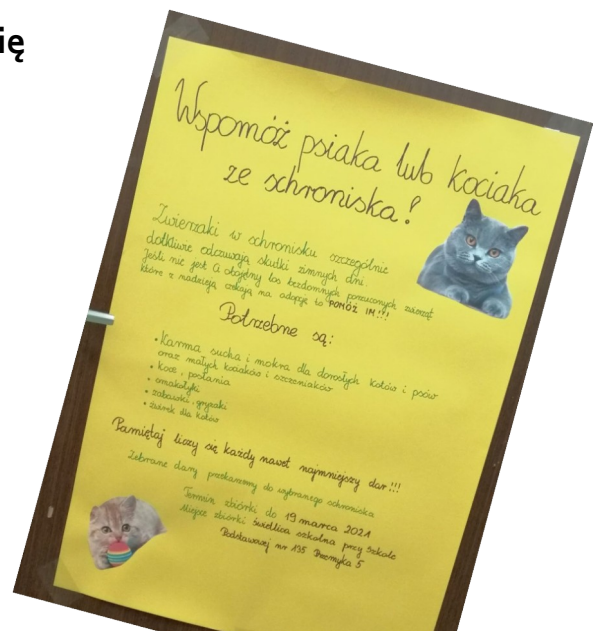 ię
Wspomóż psiaka lub kociaka
ze schroniska!
Zwierzaki w schronisku szczególnie
dotkliwie odczuwają skutki zimnych dni.
Jeśli nie jest Ci obojętny los bezdomnych porzuconych zwierząt
które z nadzieją czekają na adopcję to POMÓŻ IM!!!
Potrzebne są:
• Karma sucha i mokra dla dorosłych kotów i psów
oraz małych kociaków i szczeniaków
• koce, posłania
• smakołyki
• zabawki, gryzaki
• żwirek dla kotów
Pamiętaj liczy się każdy nawet najmniejszy dar!!!
Zebrane dary przekażemy do wybranego schroniska
Termin zbiórki do 19 marca 2021
Miejsce zbiórki świetlica szkolna przy Szkole
Podstawowej nr 195 Przemyka 5